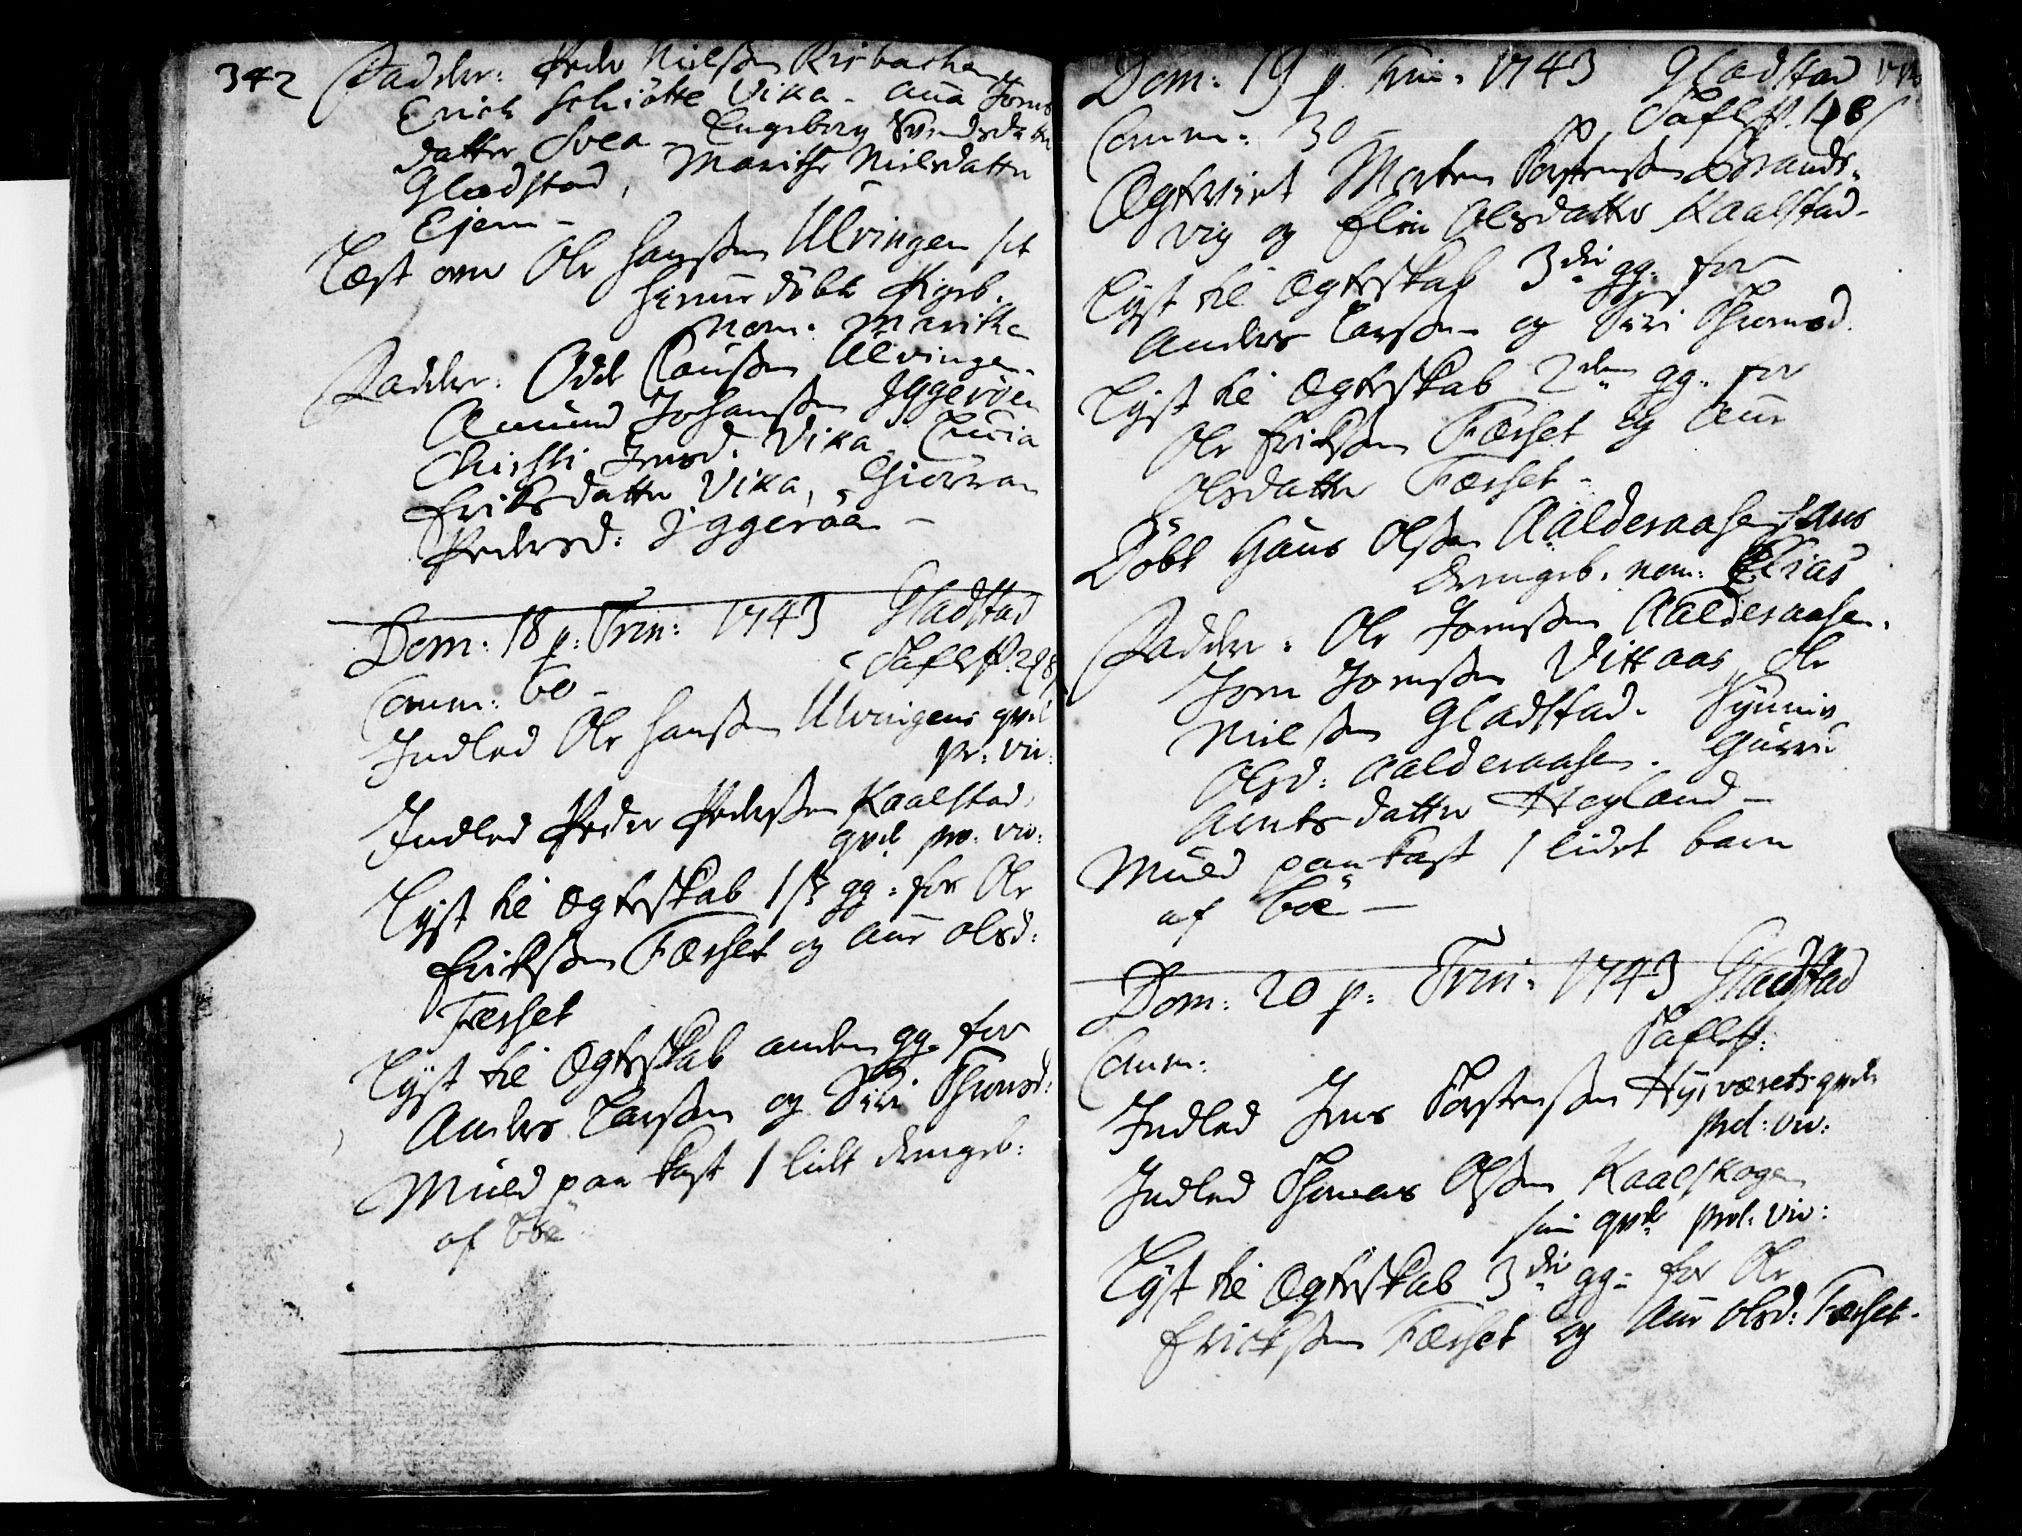 342
Fadder: Peder Nielsen Risbacken
Erick Schiøtte Vika - Anna Jons
datter Svea - Engeborg Svendsdatter
Gladstad, Marithe Nielsdatter
Ejem -
Læst over Ole Hanssen Ulvingen sit
hiemedøbte Pigeb.
nom. Marithe
Fadder: Odd Clausen Ulvingen.
Amund Johanssen Iggerøen
Chirsti Jensd. Vika Lucia
Eriksdatter Vika,
Pedersd: Iggerøen -
Dom: 18 p: Trin: 1743 Gladstad
Comm: 60 -
Indled Ole Hanssen Ulvingens qvi
pr: vic:
Indled Peder Pederssen Kaalstad,
qvi pr: vic:
Lyst til Ægteskab 1ste gg: for Ole
Erikssen Færset og Ane Olsd:
Færset
Lyst til Ægteskab anden gg. for
Anders Larssen og Siri Thomsd:
Muld paa kast 1 lidt drengeb:
af Boe
Dom: 19 p. Trin. 1743 Gladstad 1743
Comm: 30 -
Ægteviet Morten Torstenssen Brands-
vig og Elen Olsdatter Kaalstad-
Lyst til Ægteskab 3die gg. for
Anders Larssen og Siri Thomsd.
Lyst til Ægteskab 2den gg. for
Ole Erikssen Færset og Ane
Olsdatter Færset -
Døbt Hans Olssen Aalderaasen hans
drengeb. nom: Elias
Fadder: Ole Jonssen Aalderaasen.
Jon Jonssen Vittaas, Ole
Nielssen Gladstad. Synniv
Olsd: Aalderaasen. Gurru
Amtsdatter Hegland -
Muld paa kast 1 lidet barn
af Boe -
Dom: 20 p: Trin: 1743 Gladstad
Comm:
Indled Jens Torstenssen Hysværets qvi
prl: vic:
Indled Thomas Olssen Kaalskogen
sin qvi prl: vic:
Lyst til Ægteskab 3die gg: for Ole
Erickssen Færset og Ane Olsd: Færset.